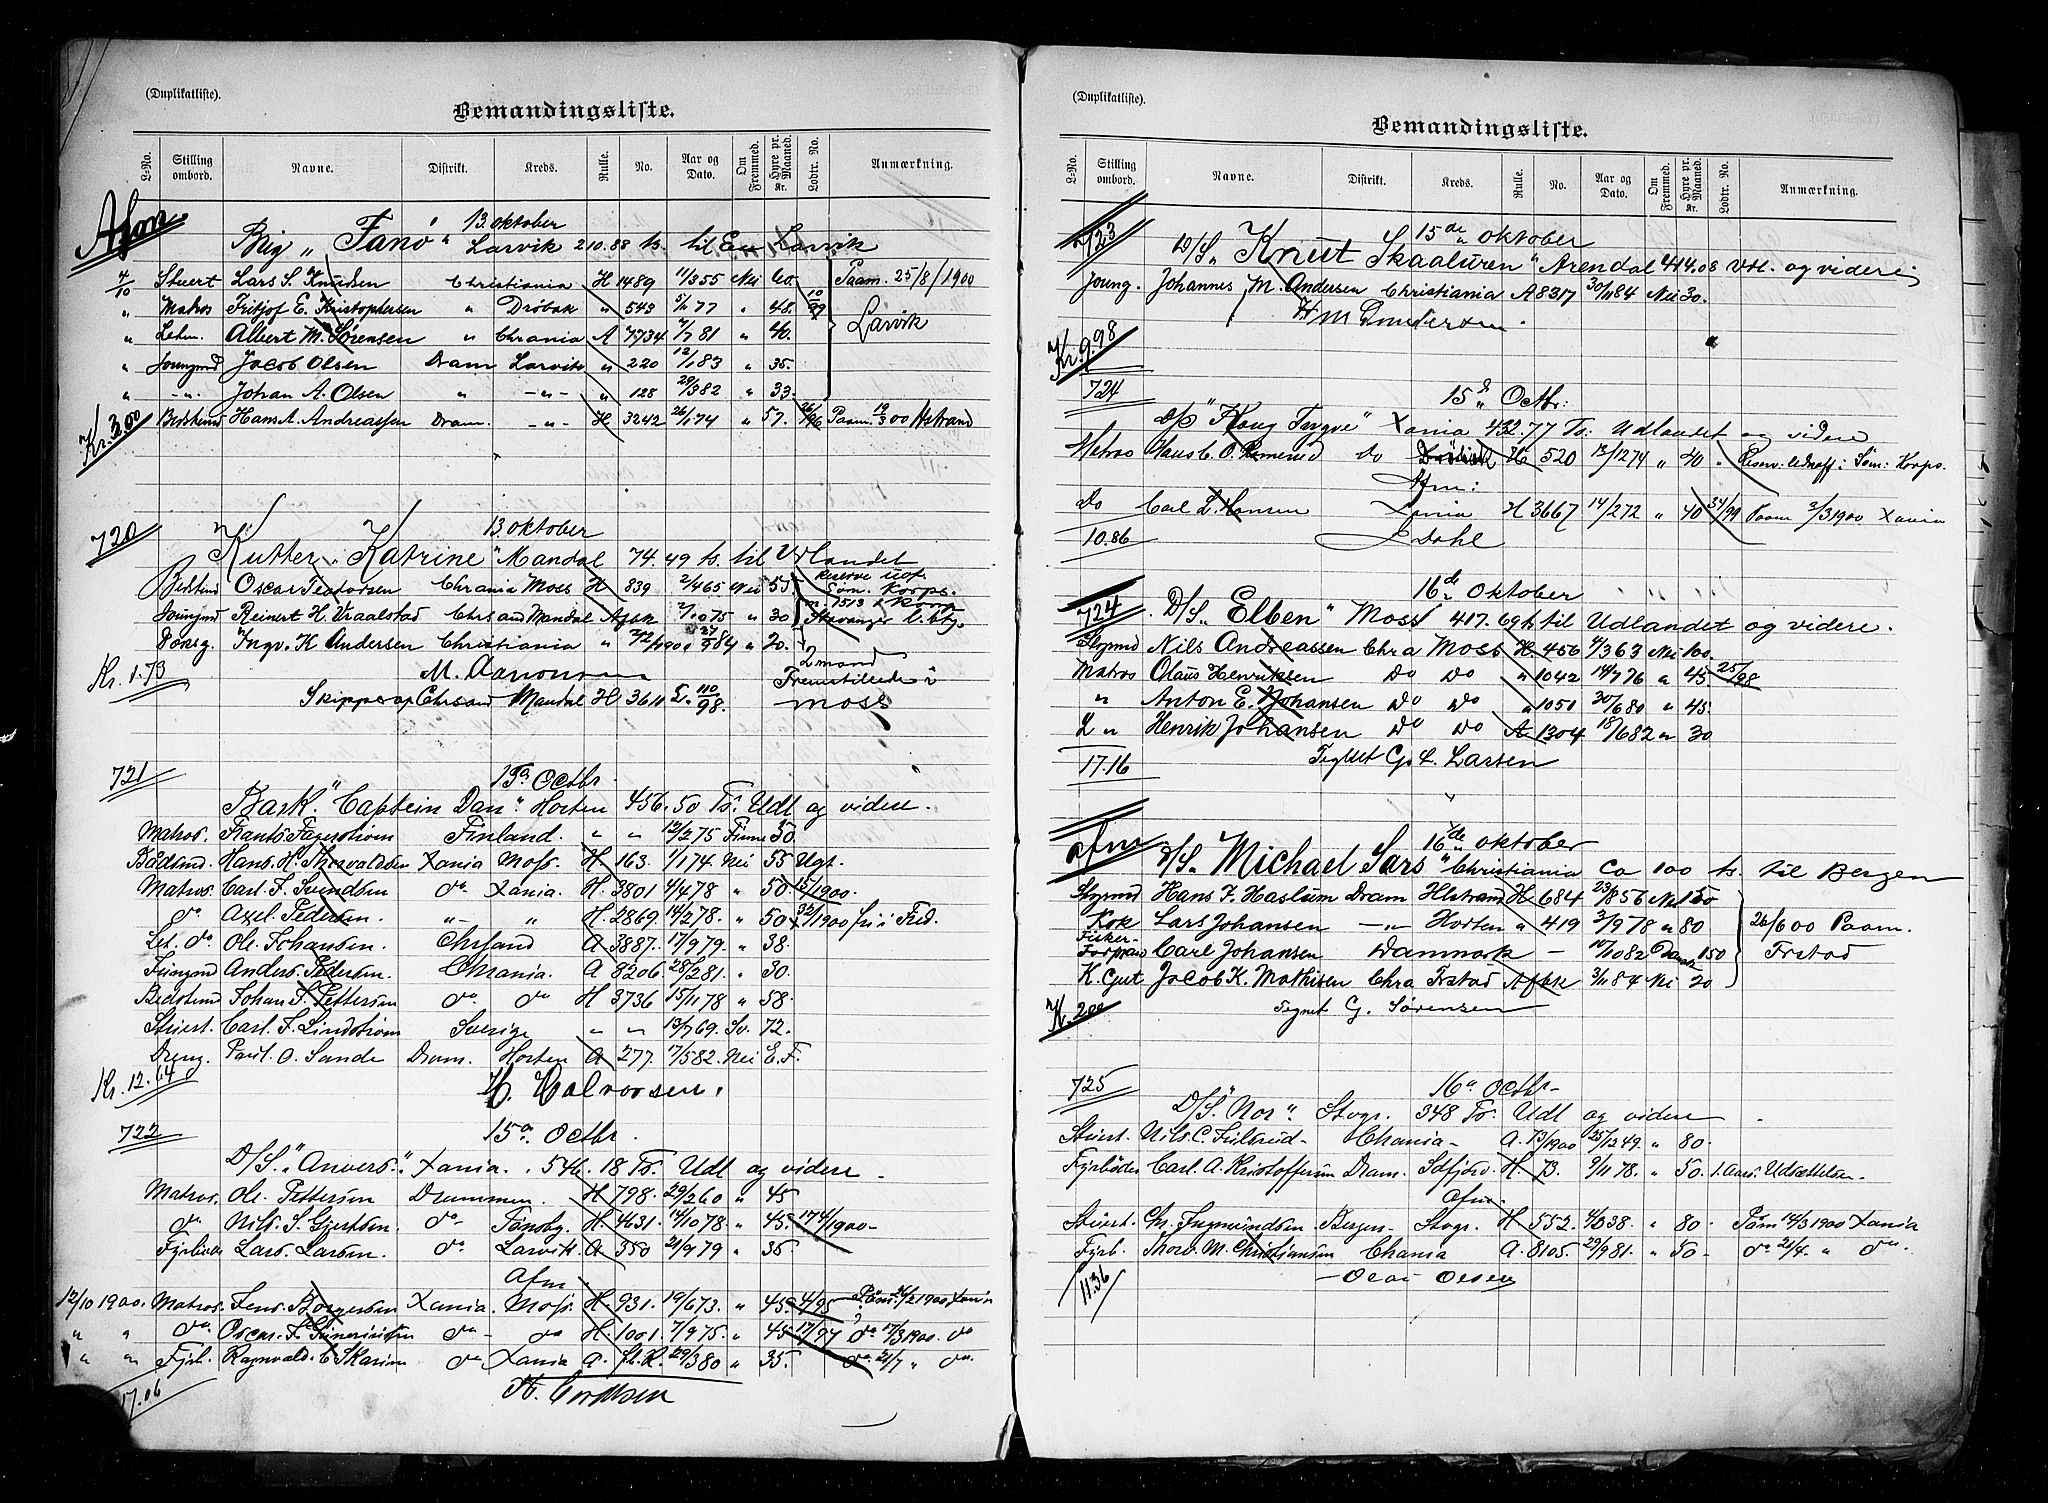 (Duplikatliste).
Bemandingsliste.
L-No. Stilling ombord. Navne. Distrikt. Kreds. Rulle. No. Aar og Dato. Om Fremmed. Hyre pr. Maaned. Kr. Lodtr. No. Anmærkning.
Afm
13 oktober
Brig „Fanö" Larvik 210.88 ts. til Larvik
4/10 Stuert Lars S. Knudsen Christiania H 1489 11/355 Nei 60. Paam. 25/8/1900
„ Matros Fritjof E. Kristophersen „ Dröbak „ 543 5/1 77 „ 48. 10/97
„ Letm. Albert M. Sørensen „ Chrania A 7734 7/7 81 „ 40. Larvik
„ Joungmd Jacob Olsen Dram Larvik „ 220 12/183 „ 35.
„ -„- Johan A. Olsen „ -„- „ 128 29/382 „ 33.
Kr. 3.00 Bedstemd Hans A. Andreassen Dram. -„- H 3242 26/174 „ 57. 26/96 Paam. 12/3 00
720
13 oktober
Kutter „Katrine" Mandal 74.49 ts. til Udlandet
Bedstmd Oscar Teodorsen Chrania Moss H 839 2/465 Nei 55. reserve uof. Søm. Korps.
Joungmd Reinert H. Vraalstad Chrsand Mandal Afsk 2/1075 „ 30 Stavanger
Dönsg. Ingv. H Andersen Christiania „ 22/2 1900 27/984 „ 20.
Kr. 1.73 M. Aanonsen 2 mand Fremstillede i moss
Skipper Chrsand Mandal H 3611 110/98.
721
15de Octbr.
Bark. „Captein Dan" Horten 456.50 Ts. Udl og videre.
Matros. Frants Fagerstrøm Finland. „ „ 12/275 Finne 50.
Baadsmd. Hans. H. Thorvaldsen Xania Moss. H. 163. 1/174 Nei 55 Ugt.
Matros. Carl. F. Svendsen do. Xania. H. 3801 4/478 „ 50. 15/1900.
do. Axel. Pedersen. „- „ H. 2869 14/278. „ 50. 32/1900 fri i Fred.
Let. do Ole. Johansen. Chrsand A 3887. 17/979. „ 38.
Jungmd Anders. Pedersen. Chrania. A 8206 28/281. „ 30.
Bedstemd Johan. S. Pettersen do. do H 3736 15/1178 „ 58.
Stuert. Carl. F. Lindstrøm Sverige „ „ 13/769. Sv. 72.
Dreng. Paul. O. Sande Dram. Horten A 277. 17/582. Nei E.F.
Kr. 12.64 H. Halvorsen.
722
15de Octbr.
D/S. „Anvers." Xania. 546.18 Ts. Udl og videre -
Matros. Ole. Pettersen Drammen. H 798. 29/260 „ 45
do. Nils. S. Gjertsen. do- Tønsbg. H. 4631. 14/1078 „ 45. 174/1900-
Fyrbøder Lars. Larsen. do. Larvik. A. 350 21/979 „ 35
Afm.
12/10 1900. Matros. Jens. Borgersen Xania. Moss. H. 931. 19/673. „ 45. 4/95 Paam. 24/2 1900 Xania
„ „ do. Oscar. F. do- do H. 1001. 7/975. „ 45 17/97 do 17/3 1900. do
„ „ Fyrb. Ragnvald. C. Skarim do. Xania A. 29/380 „ 35. do. 21/7 „ do.
17.06
(Duplikatliste).
Bemandingsliste.
L-No. Stilling ombord. Navne. Distrikt. Kreds. Rulle. No. Aar og Dato. Om Fremmed. Hyre pr. Maaned. Kr. Lodtr. No. Anmærkning.
723
15de oktober
D/S. „Knut Skaaluren" Arendal 414.08 Udl. og videre
Joung. Johannes M. Andersen Christiania A 8317 30/1184 Nei 30.
H M Gundersen.
Kr 9.98
724
15de Octbr:
D/S "Kong Trygve" Xania 432.77 Ts: Udlandet og videre
Matros Hans C. O. Romerud do H 520 13/1274 „ 40 „ Reserv. Udroff: Søm: Korps.
Afm:
Do Carl L. Hansen Xania H 3667 14/272 „ 40 34/99 Paam 2/3 1900 Xania
10.86 L Dahl
724
16de oktober
D/S. „Elben" Moss 417.69 ts. til Udlandet og videre.
Styrmd Nils Andreassen Chra Moss H. 456 4/363 Nei 100.
Matros Olaus Henriksen Do Do „ 1042 14/776 „ 45 25/98
„ Anton E. Johansen Do Do „ 1051 30/680 „ 45.
L „ Henrik Johansen Do Do A 1304 18/682 „ 30
17.16 Tegnet G. L. Larsen
Afm
16de oktober
D/S. „Michael Sars" Christiania ca 100 ts. til Bergen
Styrmd Hans J. Haslum Dram Hlstrand H 684 23/856 Nei 150
Kok Lars Johansen -„- Horten „ 419 3/978 „ 80 26/600 Paam.
Fisker- Carl Johansen Danmark - 10/1082 Dansk 150 Frstad
K. Gut Jacob K. Mathisen Chra Frstad Afsk 3/1184 Nei 20
K. 2.00 Tegnet G. Sørensen
725
16de Octbr-
D/S. „Nor" Stvgr. 348 Ts. Udl og videre
Stuert. Nils. C. Chania- A. 73/1900 25/1249. „ 80.
Fyrbøder Carl. A. Kristoffersen Dram. Sdfjord. H. 73. 9/1178. „ 50. 1. Aars. Udsættelse.
Afm.
Stuert. Chr. Ingmundsen Bergen- Stvgr. H 552. 4/1038. „ 80. Paam 14/3 1900 Xania
Fyrb. Thorv. M. Christiansen Chania A. 8105. 29/981. „ 50- do 21/4. „ do.
11.36 Olai Olsen